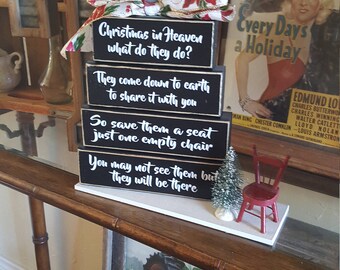 Christmas in Heaven
what do they do?
They come down to earth
to share it with you
So save them a seat
just one empty chair
You may not see them but
they will be there
Every Day's
a Holiday
EDMUND LOWE
CHARLES BUTTERWORTH
CHARLES WINNINGER
WALTER CATLETT
LLOYD NOLAN